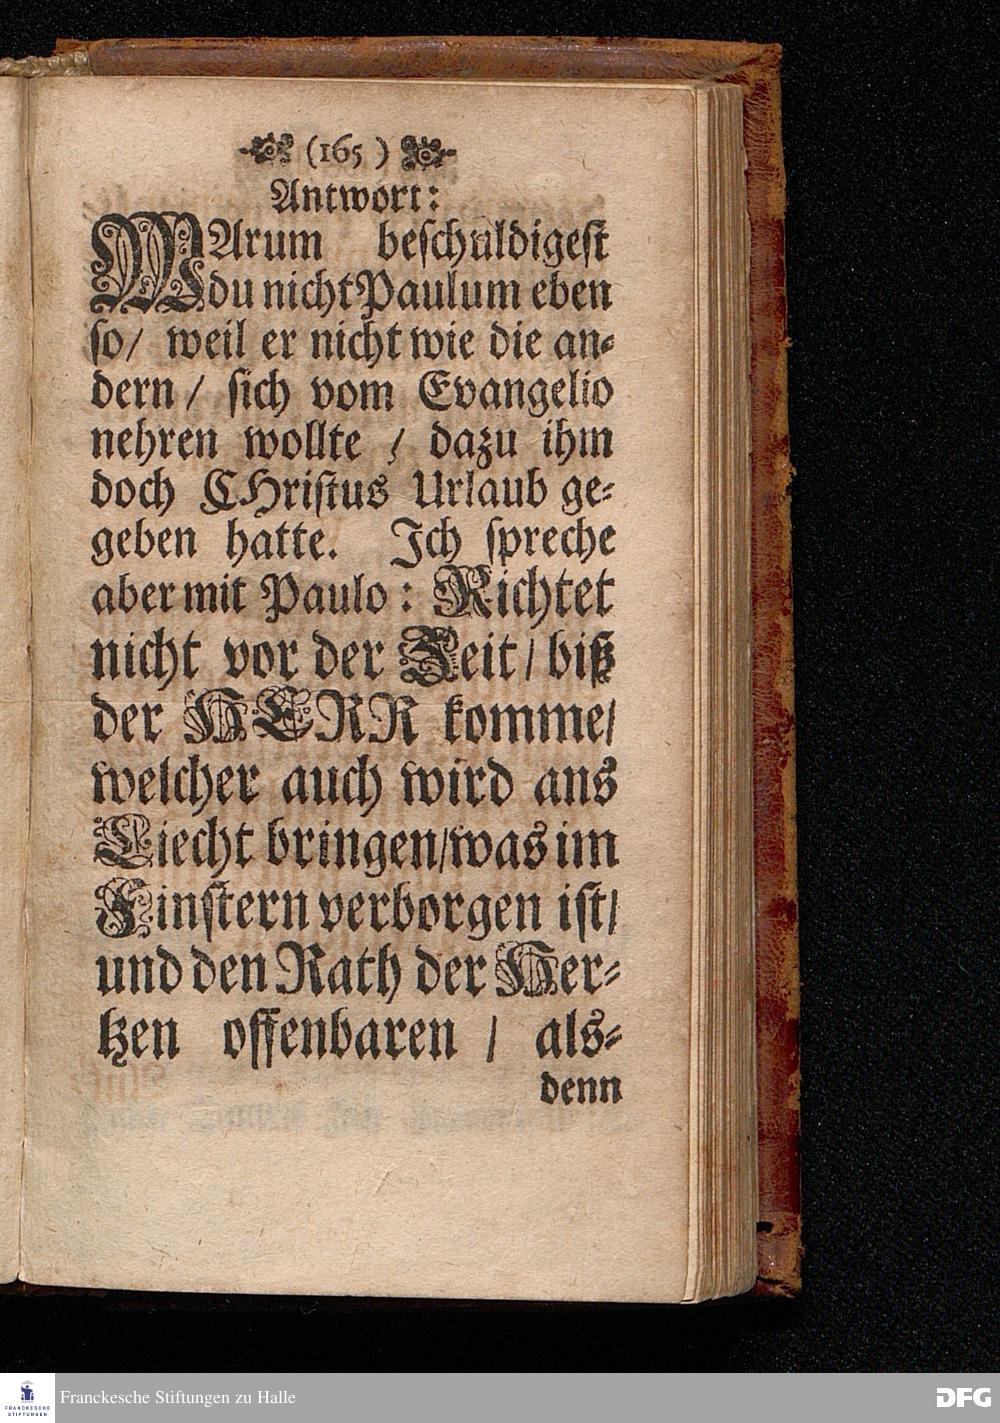 (165)
Antwort:
WArum beſchuldigeſt
du nicht Paulum eben
ſo/ weil er nicht wie die an⸗
dern / ſich vom Evangelio
nehren wollte / dazu ihm
doch CHriſtus Urlaub ge⸗
geben hatte. Ich ſpreche
aber mit Paulo: Richtet
nicht vor der Zeit / biß
der HERR komme/
welcher auch wird ans
Liecht bringen/was im
Finſtern verborgen iſt/
und den Rath der Her⸗
tzen offenbaren / als⸗
denn
Franckesche Stiftungen zu Halle
FRANCKESCHE
STIFTUNGEN
DFG